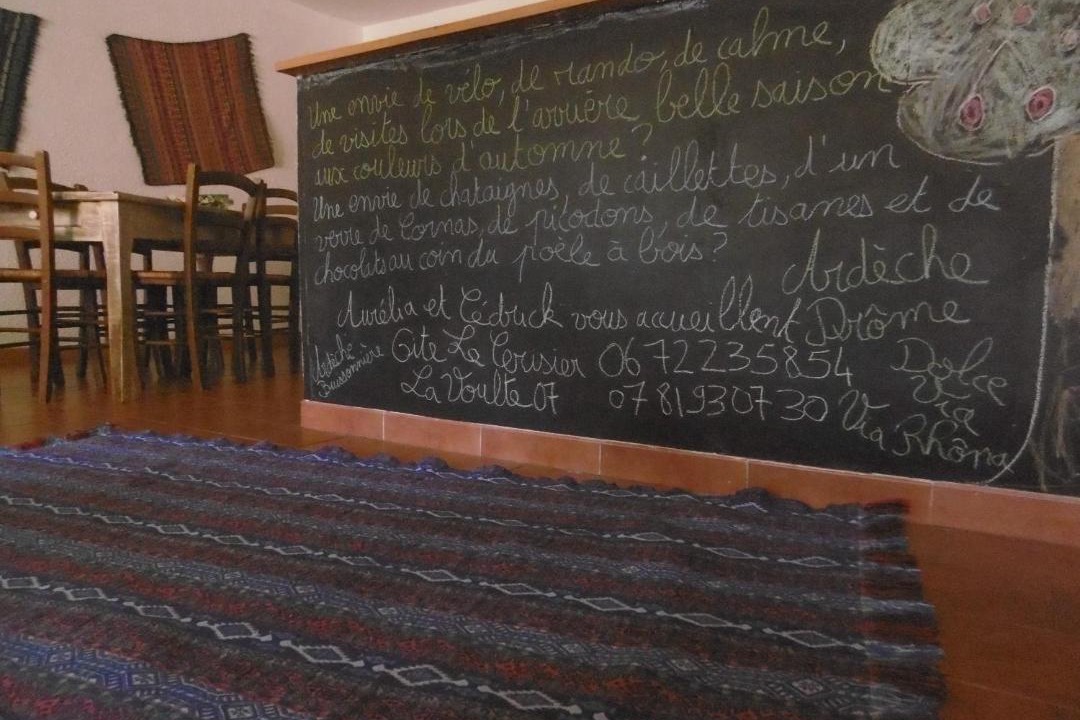 Une envie de vélo, de rando, de calme,
de visites lors de l'arrière belle saison
aux couleurs d'automne ?
Une envie de chataignes, de caillettes, d'un
verre de Cornas, de picodons, de tisanes et de
chocolats au coin du poêle à bois ?
Aurélia et Cédrick vous accueillent
Gite Le Cerisier 06 72235854
La Voulte 07 07 81930730
Ardèche
Buissonnière
Ardèche
Drôme
Dolce
Via
Via Rhôna